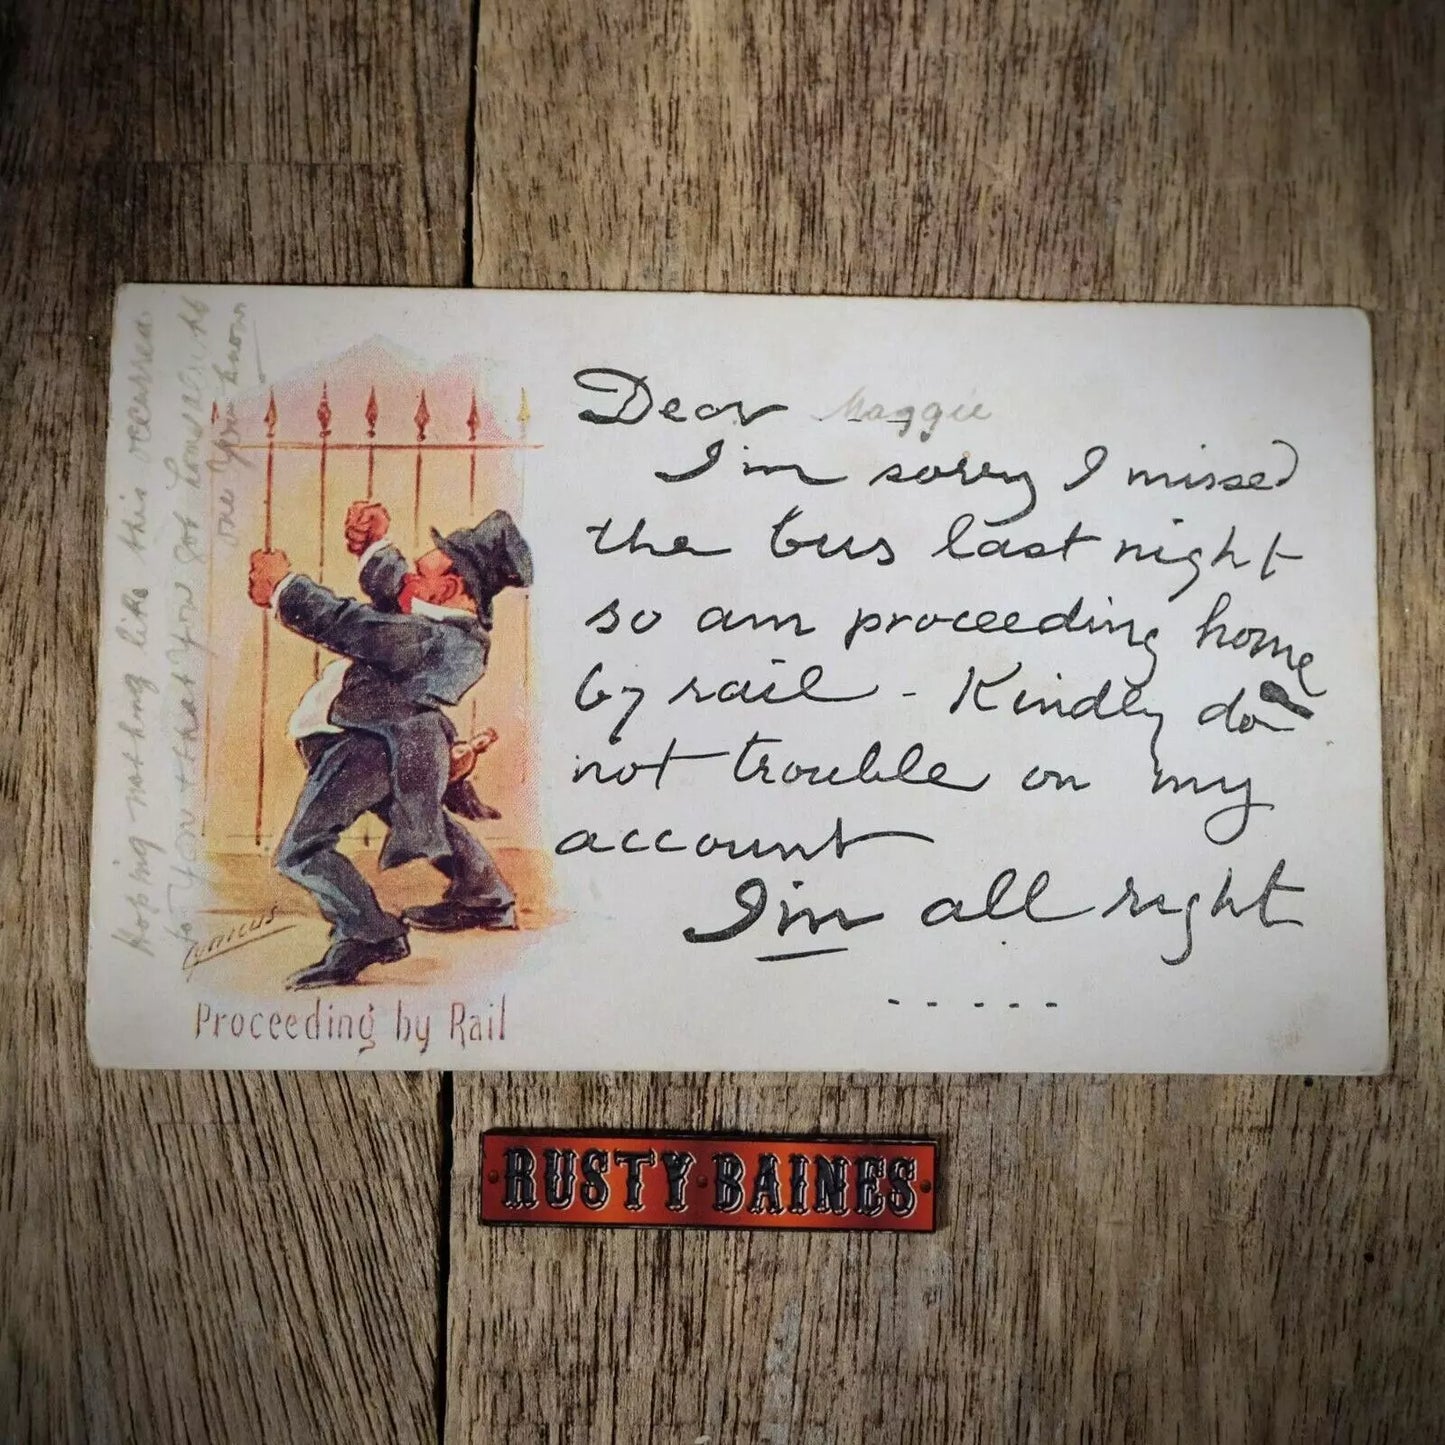 Dear Maggie
I'm sorry I missed
the bus last night
so am proceeding home
by rail - Kindly do
not trouble on my
account
I'm all right
.....
Hoping nothing like this occurred
to You & that You got home
one You know
Cynicus
Proceeding by Rail
RUSTY BAINES